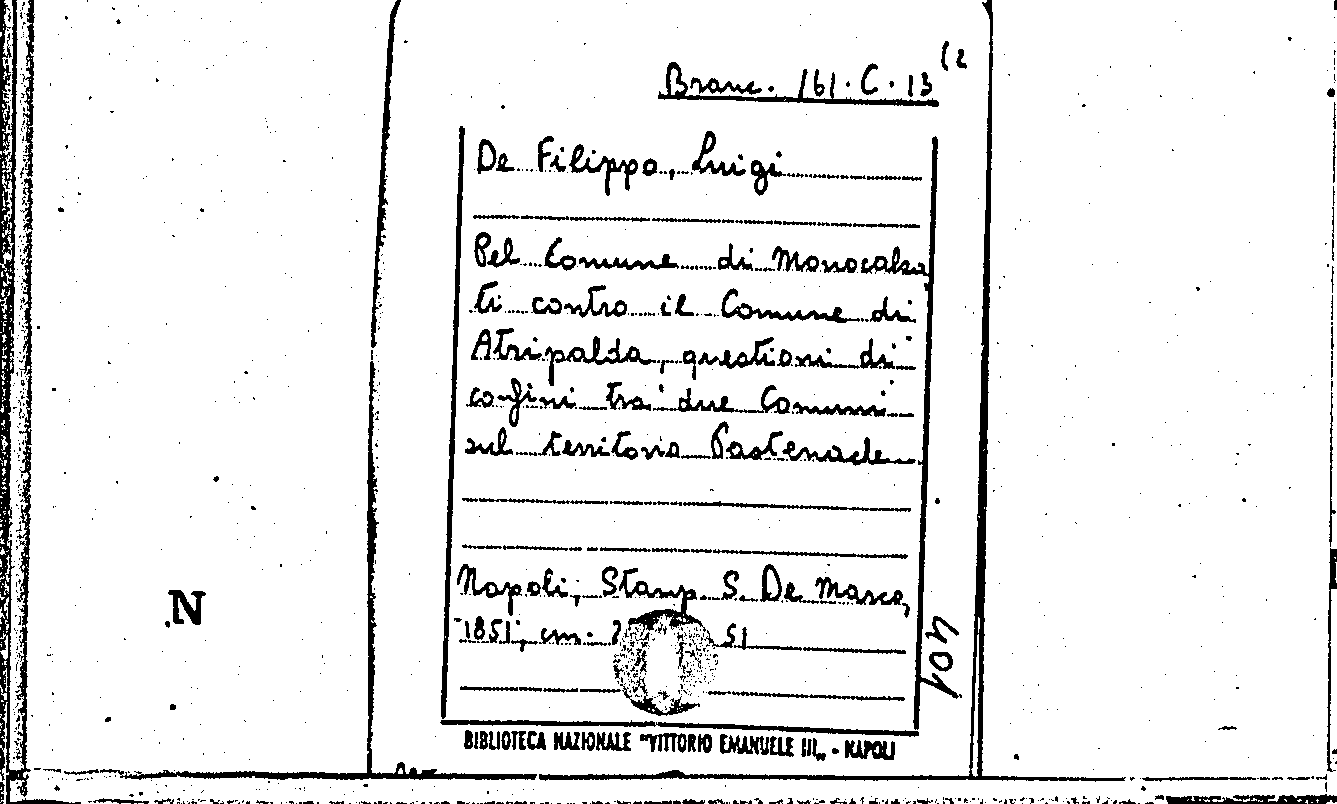 Branc. 161. C. 13 (2
De Filippo, Luigi
Pel Comune di Monocalza
ti contro il Comune di
Atripalda, questioni di
confini tra' due Comuni
sul territorio Pastenade
Napoli, Stamp. S. De Marco,
1851, cm. 51
401
N
BIBLIOTECA NAZIONALE "VITTORIO EMANUELE III„ - NAPOLI